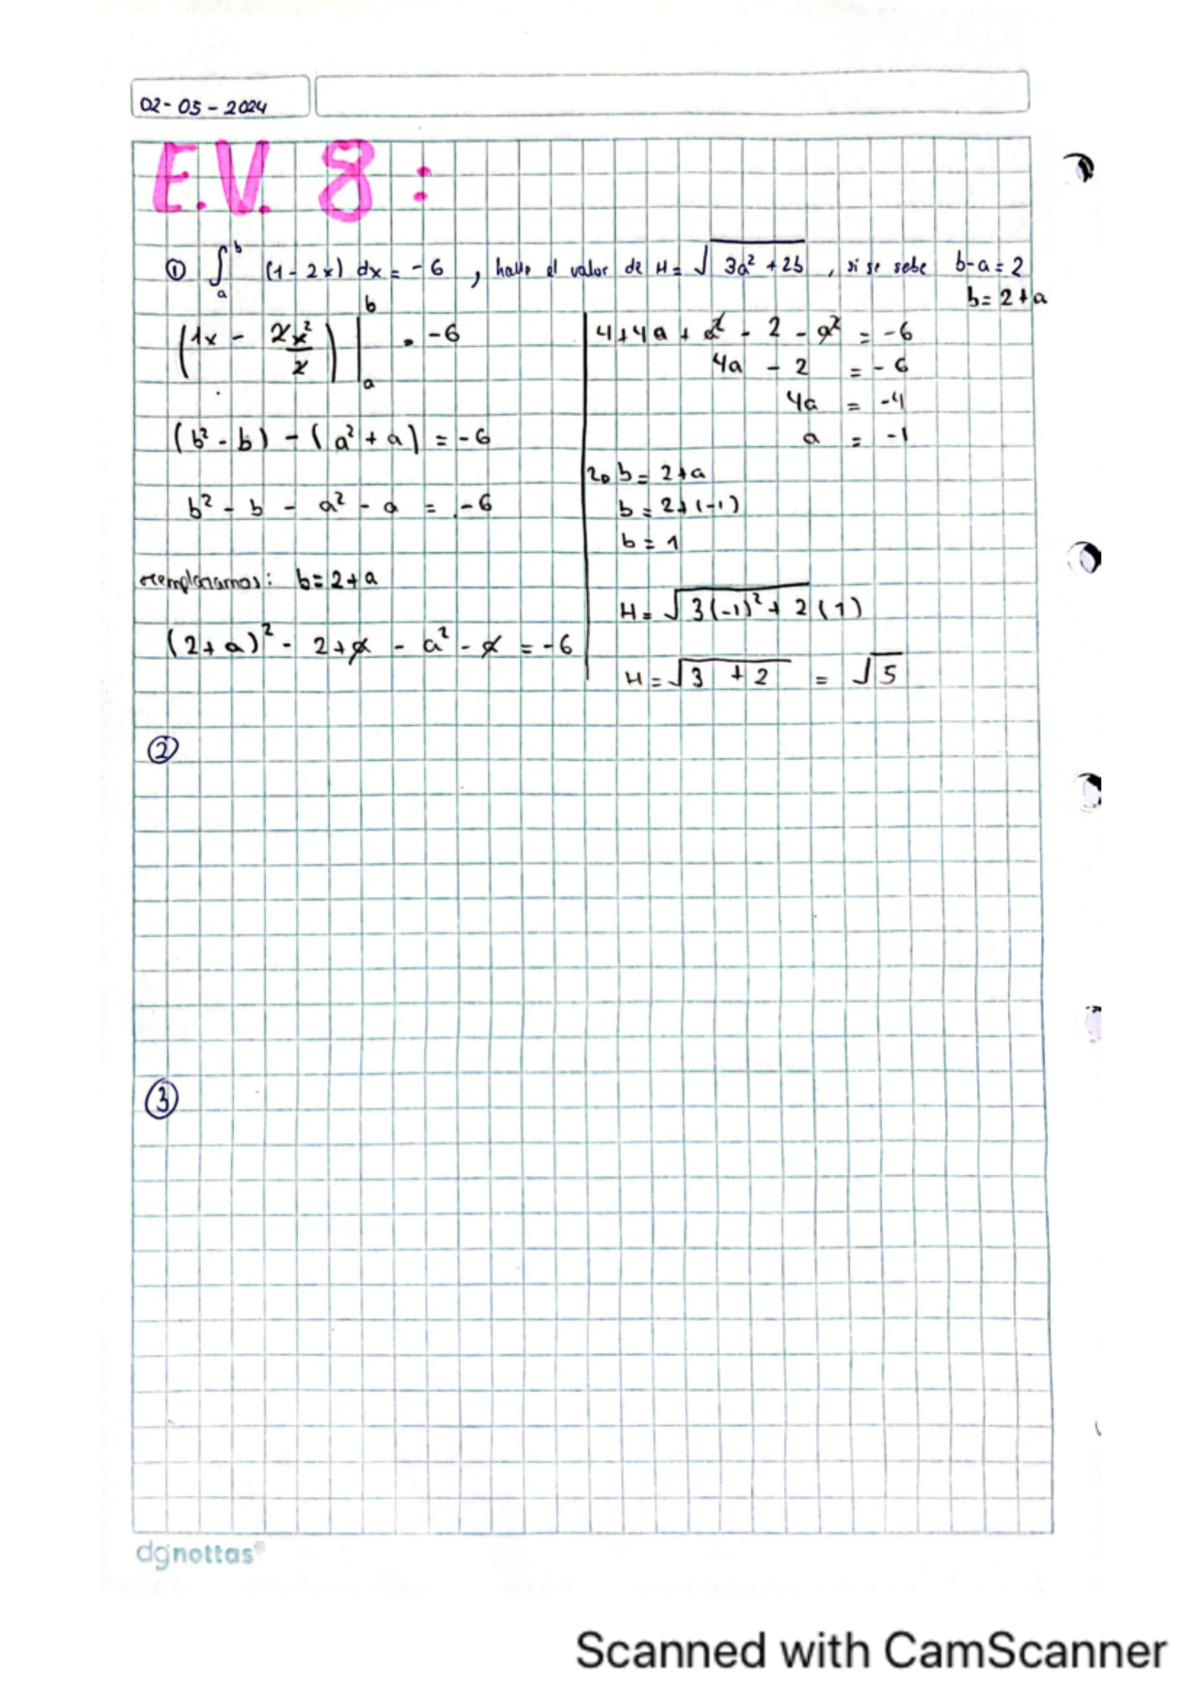 02-05-2024
E.V. 8:
① ∫ₐᵇ (1-2x) dx = -6, halle el valor de H = √(3a² + 2b), si se sabe b-a = 2
b = 2+a
(1x - 2x²/2) |ₐᵇ = -6
(b² - b) - (a² + a) = -6
b² - b - a² - a = -6
remplazamos: b = 2+a
(2+a)² - 2+a - a² - a = -6
4+4a + a² - 2 - a² = -6
4a - 2 = -6
4a = -4
a = -1
b = 2+a
b = 2+(-1)
b = 1
H = √(3(-1)² + 2(1))
H = √(3 + 2) = √5
②
③
dgnottas®
Scanned with CamScanner